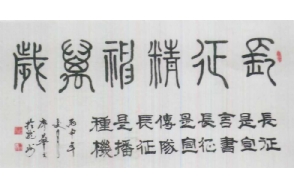 長征精神萬歲
長征
是宣
言書
長征
是宣
傳隊
長征
是播
種機